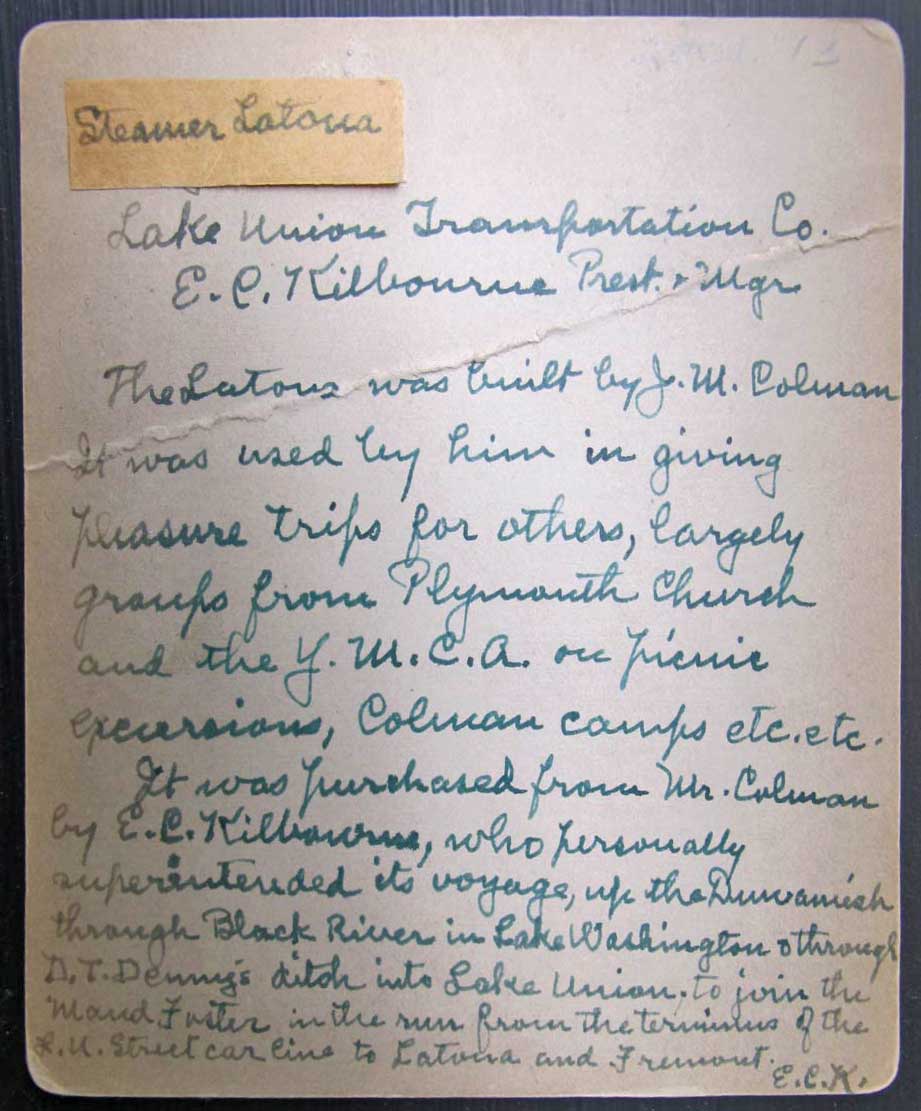 Steamer Latona
Lake Union Transportation Co.
E. C. Kilbourne Prest. & Mgr.
The Latona was built by J. M. Colman
It was used by him in giving
pleasure trips for others, largely
groups from Plymouth Church
and the Y. M. C. A. on picnic
excursions, Colman camps etc. etc.
It was purchased from Mr. Colman
by E. C. Kilbourne, who personally
superintended its voyage, up the Duwamish
through Black River in Lake Washington & through
D. T. Denny's ditch into Lake Union, to join the
Maud Foster in the run from the terminus of the
L. U. Street car line to Latona and Fremont.
E. C. K.